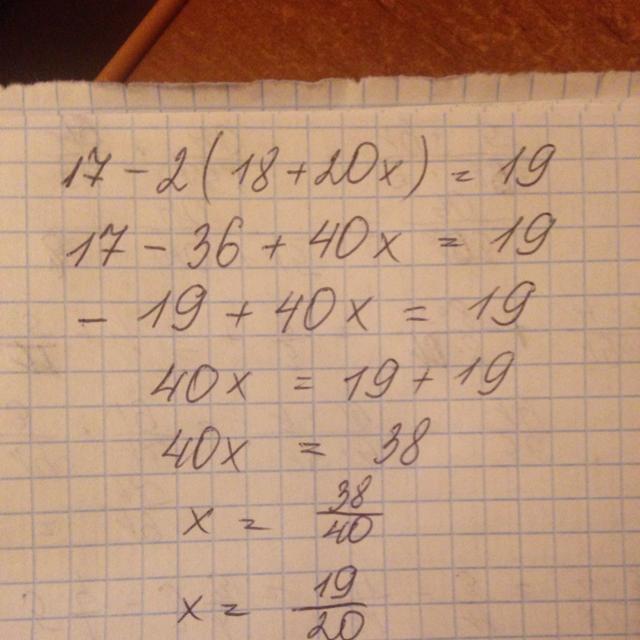 17 - 2(18 + 20x) = 19
17 - 36 + 40x = 19
- 19 + 40x = 19
40x = 19 + 19
40x = 38
x = 38/40
x = 19/20